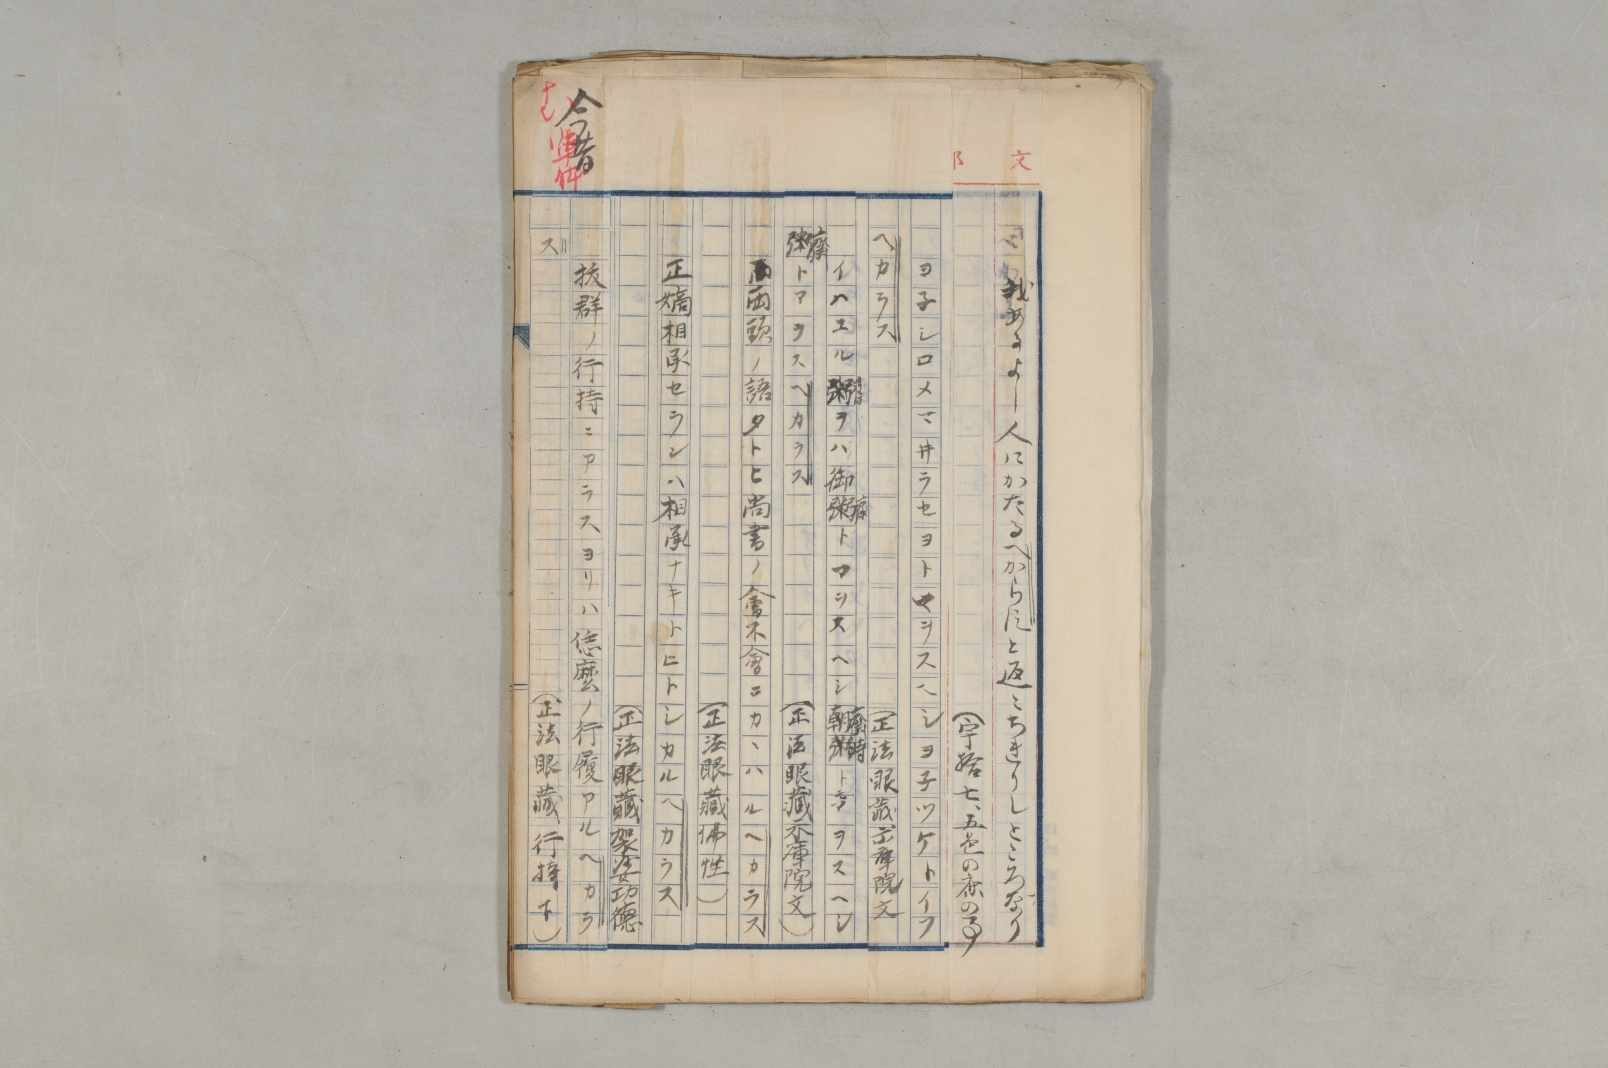 今昔
文
我あるよし人にかたるへからすと返〻ちきりしところなり
(宇拾七、五色の鹿の事
ヨ子シロメマヰラセヨトマウスヘシヨ子ツケトイフ
ヘカラス
(正法眼蔵示庫院文
イハユル粥ヲハ御粥トマウスヘシ朝粥トモマウスヘシ
粥トマウスヘカラス
(正法眼藏示庫院文)
両頭ノ語タトヒ尚書ノ會不會ニカヽハルヘカラス
(正法眼藏佛性)
正嫡相承セランハ相承ナキトヒトシカルヘカラス
(正法眼藏袈裟功德
抜群ノ行持ニアラスヨリハ恁麼ノ行履アルヘカラ
ス
(正法眼藏行持下)